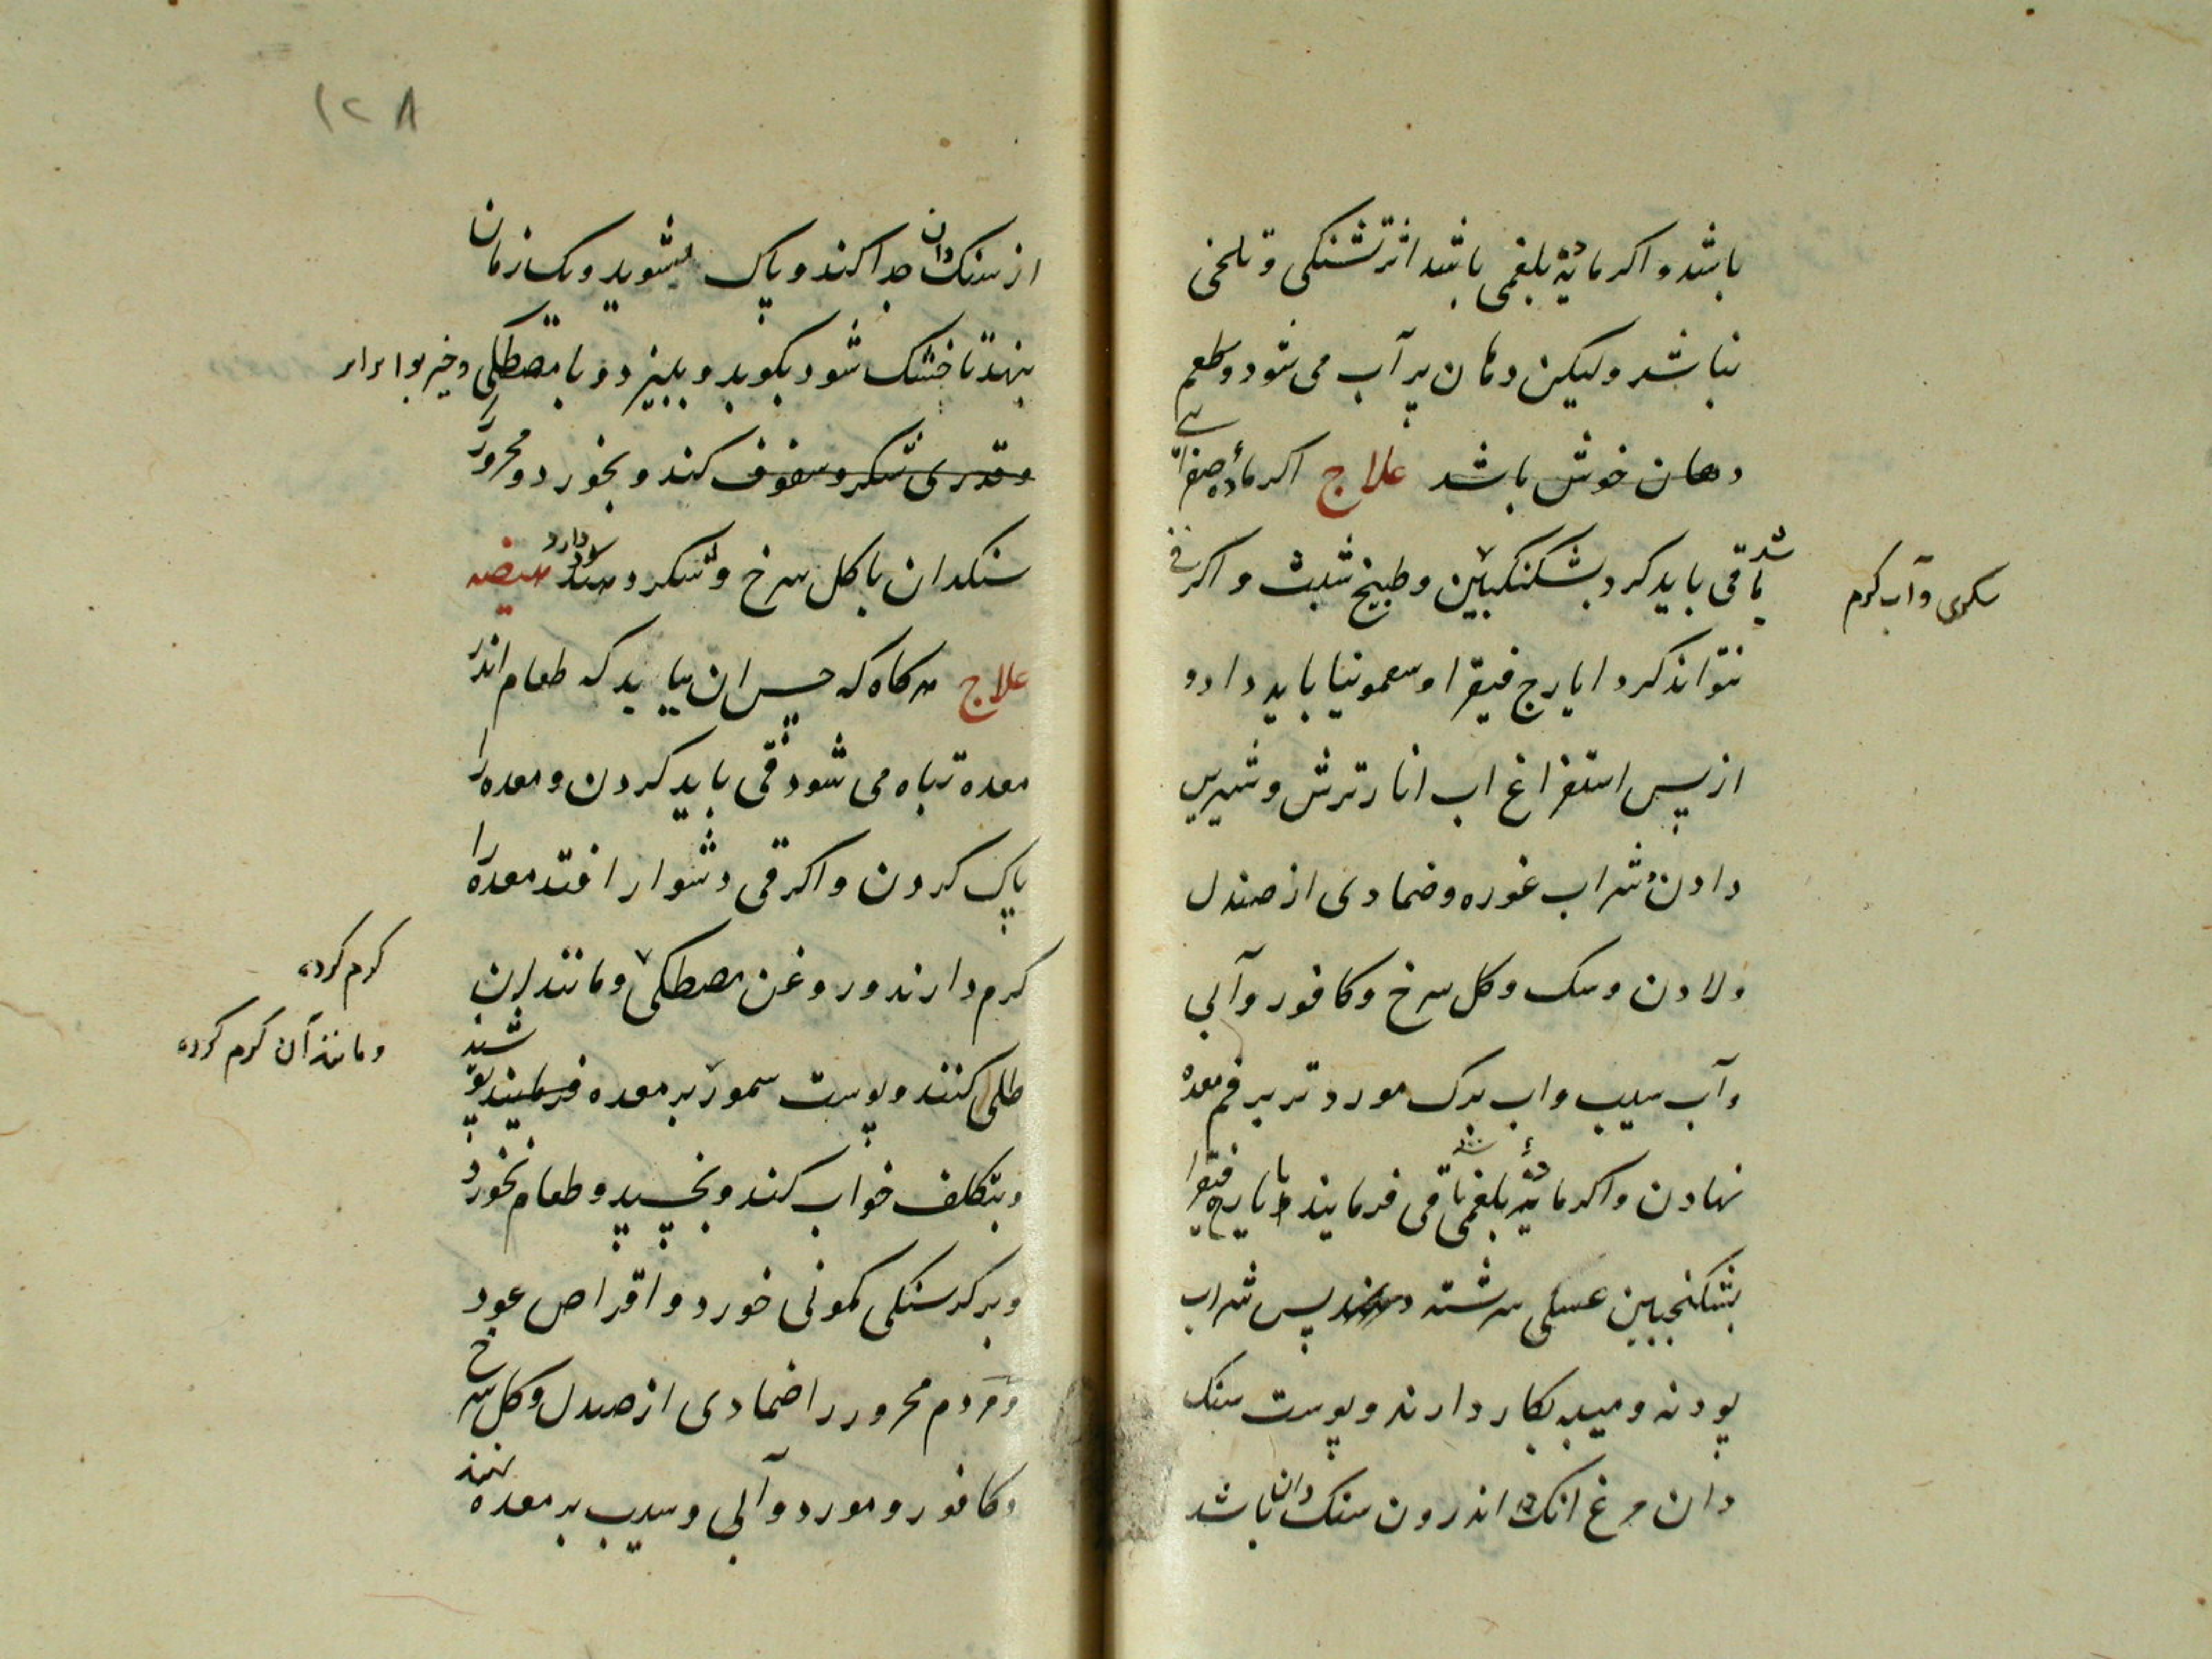 باشد و اکر مایۀ بلغمی باشد اثر تشنکی و تلخی
نباشد ولیکن دهان پر آب می شود و طعم
دهان خوش باشد علاج اکر مادۀ صفرائی
باشد قی باید کرد بسکنکبین و طبیخ شبث و اکر قی
سکری و آب کرم
نتواند کرد ایارج فیقرا و سقمونیا باید داد و
از پس استفراغ اب انار ترش و شیرین
دادن و شراب غوره و ضمادی از صندل
و لادن و سک و کل سرخ و کافور و آبی
و آب سیب و اب برک مورد تر بر فم معده
نهادن و اکر مایۀ بلغمی باشد قی فرمایند و ایارج فیقرا
بسکنجبین عسلی سرشته دهند پس شراب
پودنه و میبه بکار دارند و پوست سنک
دان مرغ انک اندرون سنک دان باشد
۱۲۸
از سنک دان جدا کند و پاک بشوید و یک زمان
بنهد تا خشک شود بکوبد و ببیزد و با مصطکی و خیر بوا برابر
و قدری شکر و سفوف کند و بخورد و محرور را
سنکدان با کل سرخ و شکر سود دارد هیضه
علاج هرکاه که چیزان بیاید که طعام اندر
معده تباه می شود قی باید کردن و معده را
پاک کردن و اکر قی دشوار افتد معده را
کرم دارند و روغن مصطکی و مانند ان
کرم کرده
و مانند آن کرم کرده
طلی کنند و پوست سمور بر معده پوشند
و بتکلف خواب کند و بخسپد و طعام نخورد
و بر کرسنکی کمونی خورد و اقراص عود
و مردم محرور را ضمادی از صندل و کل سرخ
و کافور و مورد و آبی و سیب بر معده نهند